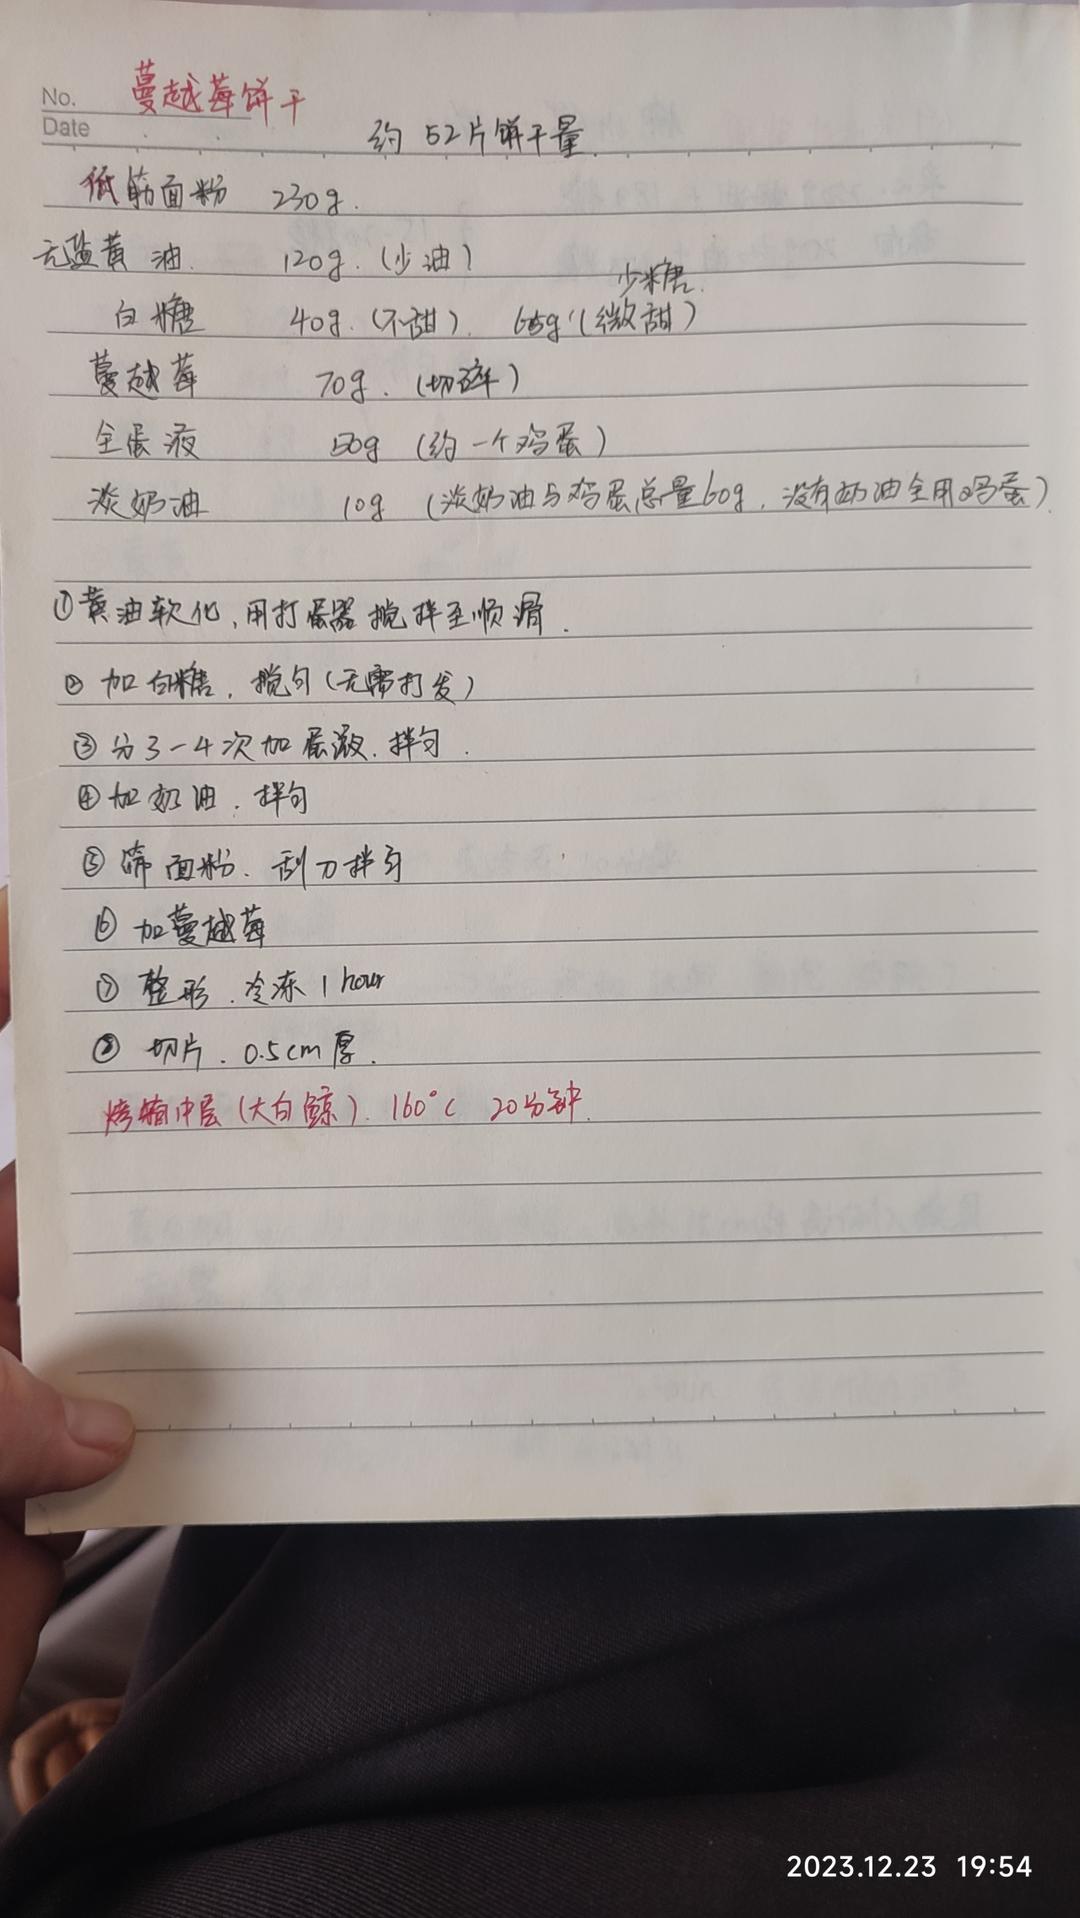 No. 蔓越莓饼干
Date
约 52片饼干量
低筋面粉 230g.
无盐黄油. 120g. (少油)
少糖.
白糖 40g. (不甜). 65g (微甜)
蔓越莓 70g. (切碎)
全蛋液 50g (约一个鸡蛋)
淡奶油 10g (淡奶油与鸡蛋总量60g, 没有奶油全用鸡蛋).
① 黄油软化, 用打蛋器搅拌至顺滑.
② 加白糖, 搅匀 (无需打发)
③ 分3-4次加蛋液. 拌匀.
④ 加奶油. 拌匀
⑤ 筛面粉. 刮刀拌匀
⑥ 加蔓越莓
⑦ 整形. 冷冻 1 hour
⑧ 切片. 0.5cm厚.
烤箱中层 (大白鲸). 160°C 20分钟.
2023.12.23 19:54